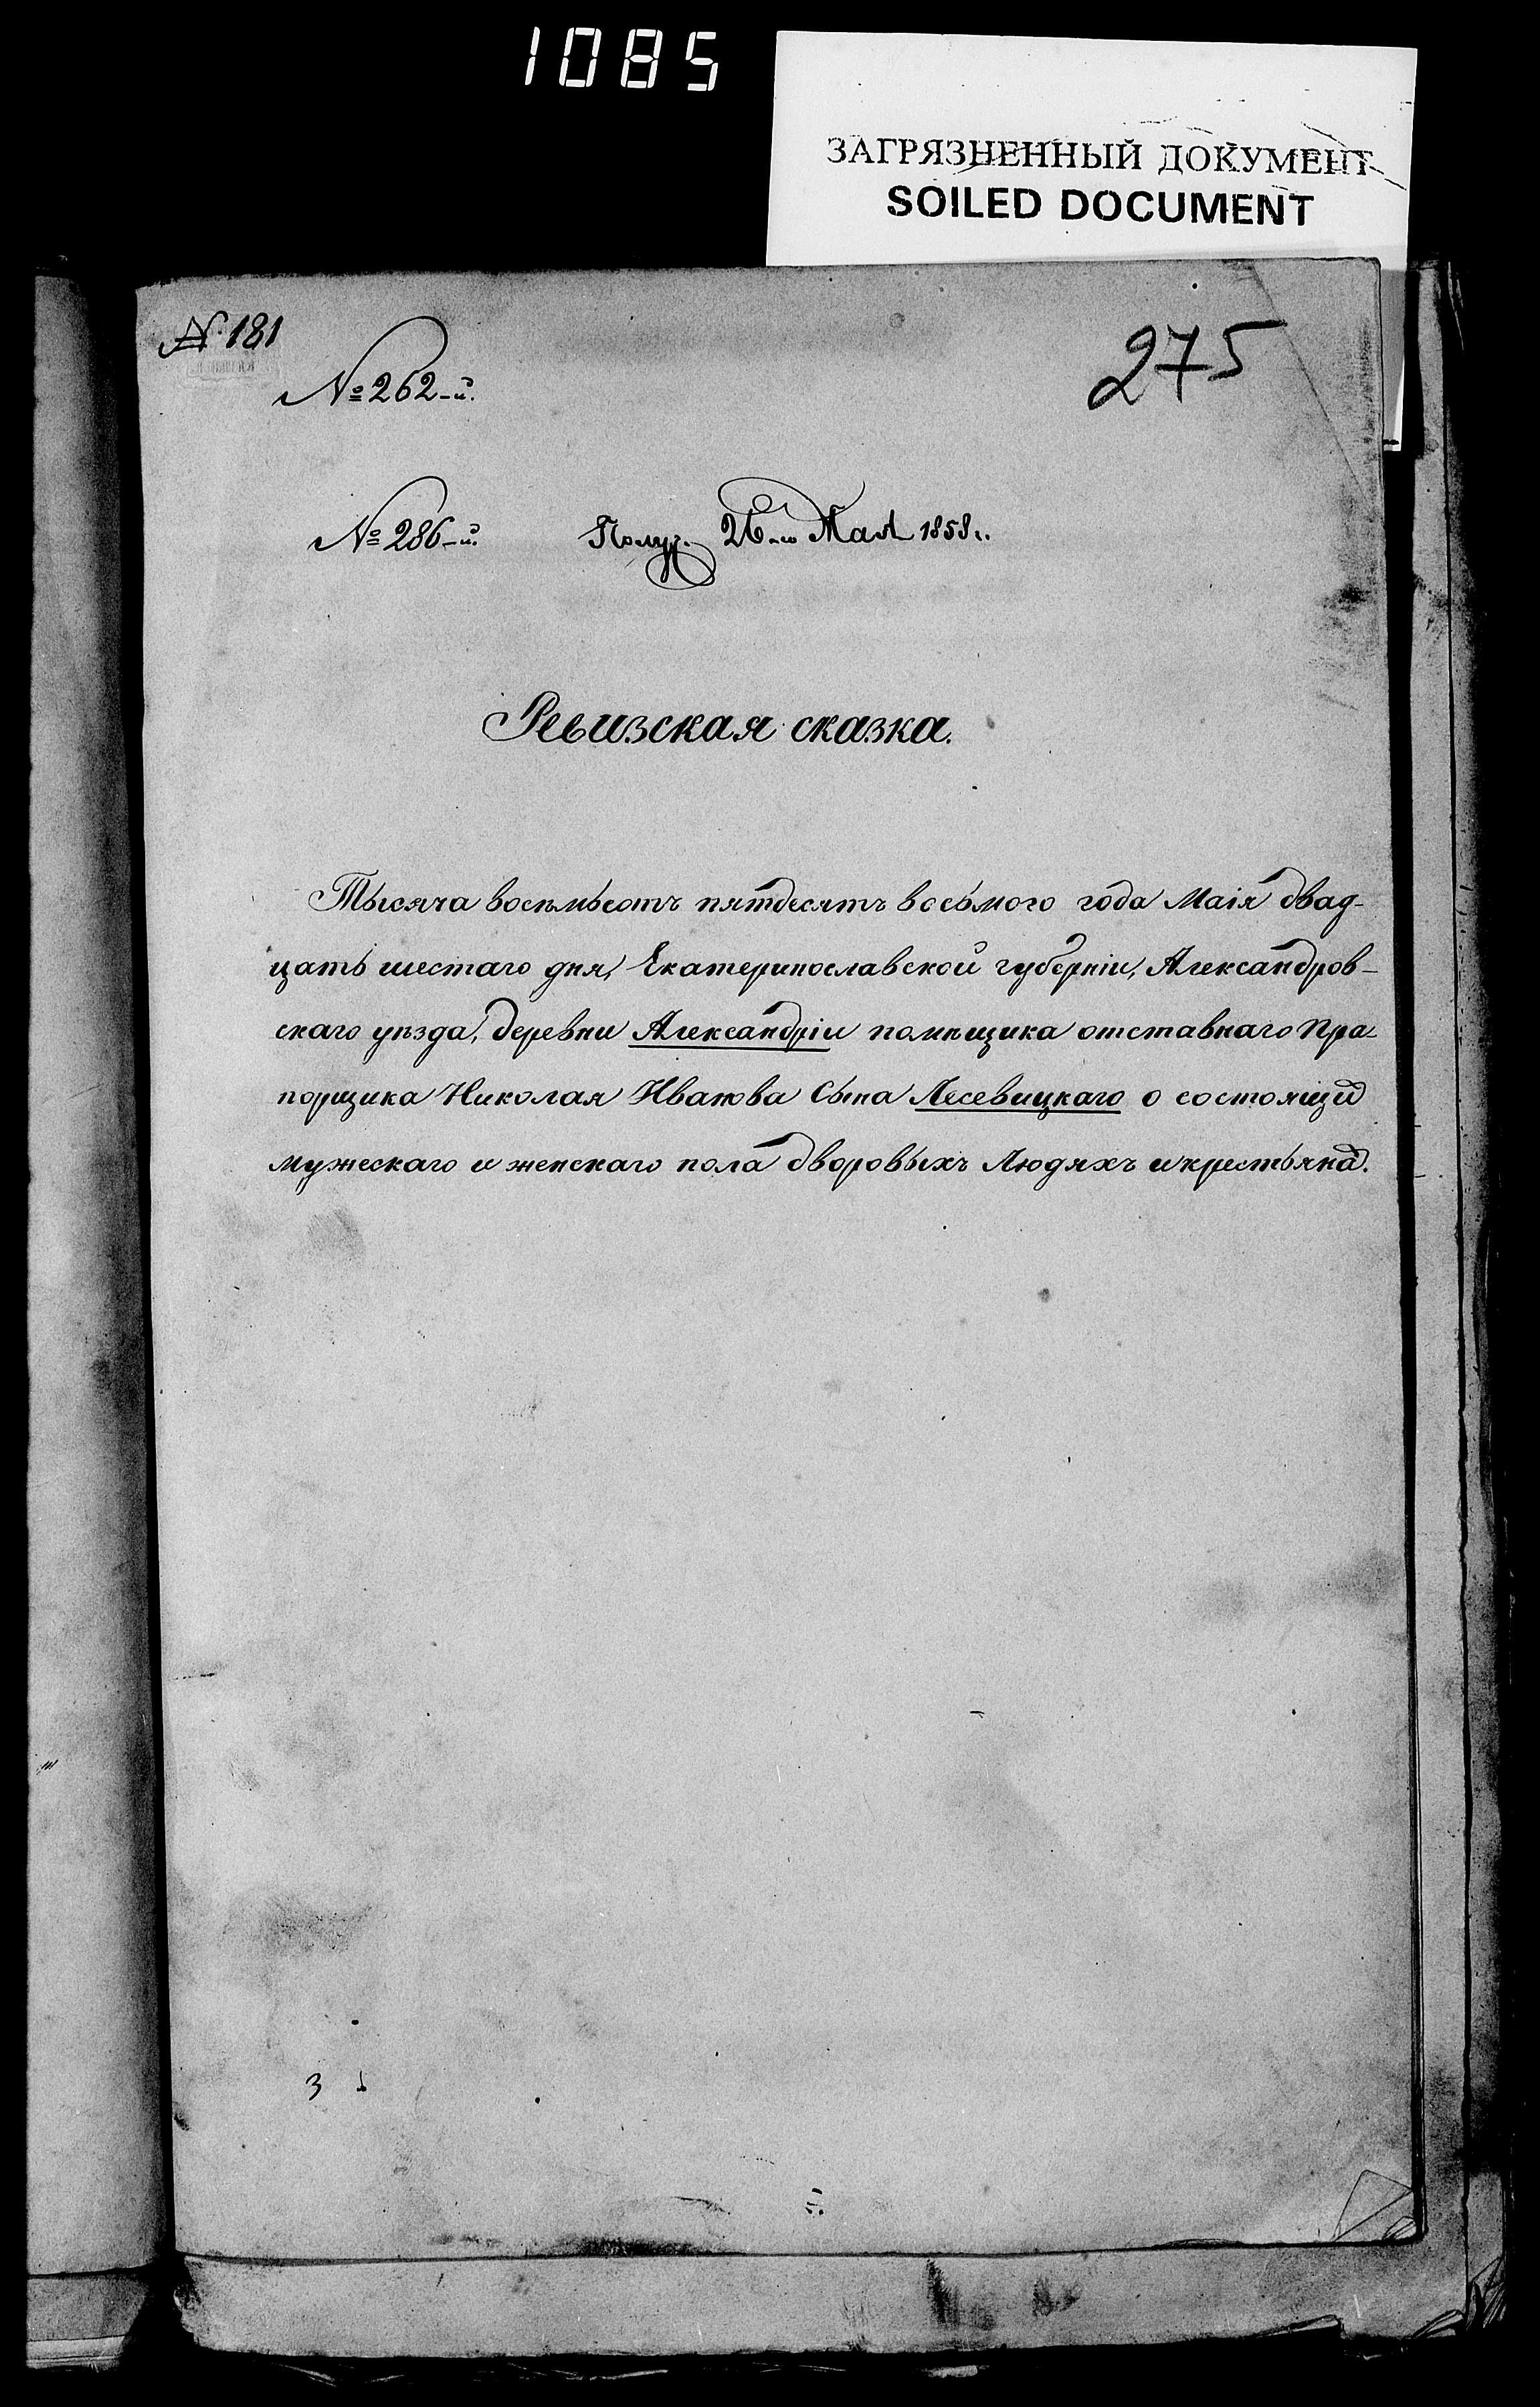 1085
ЗАГРЯЗНЕННЫЙ ДОКУМЕНТ
SOILED DOCUMENT
№ 181
275
№ 262-й.
№ 286-й. Получ. 26-го Мая 1858 г.
Ревизская сказка.
Тысяча восемьсотъ пятдесятъ восьмого года Маія двад-
цать шестаго дня, Екатеринославской губерніи, Александров-
скаго уѣзда, деревни Александріи помѣщика отставнаго Пра-
порщика Николая Иванова Сына Лесевицкаго о состоящих
мужескаго и женскаго пола дворовыхъ Людяхъ и крестьянах.
3